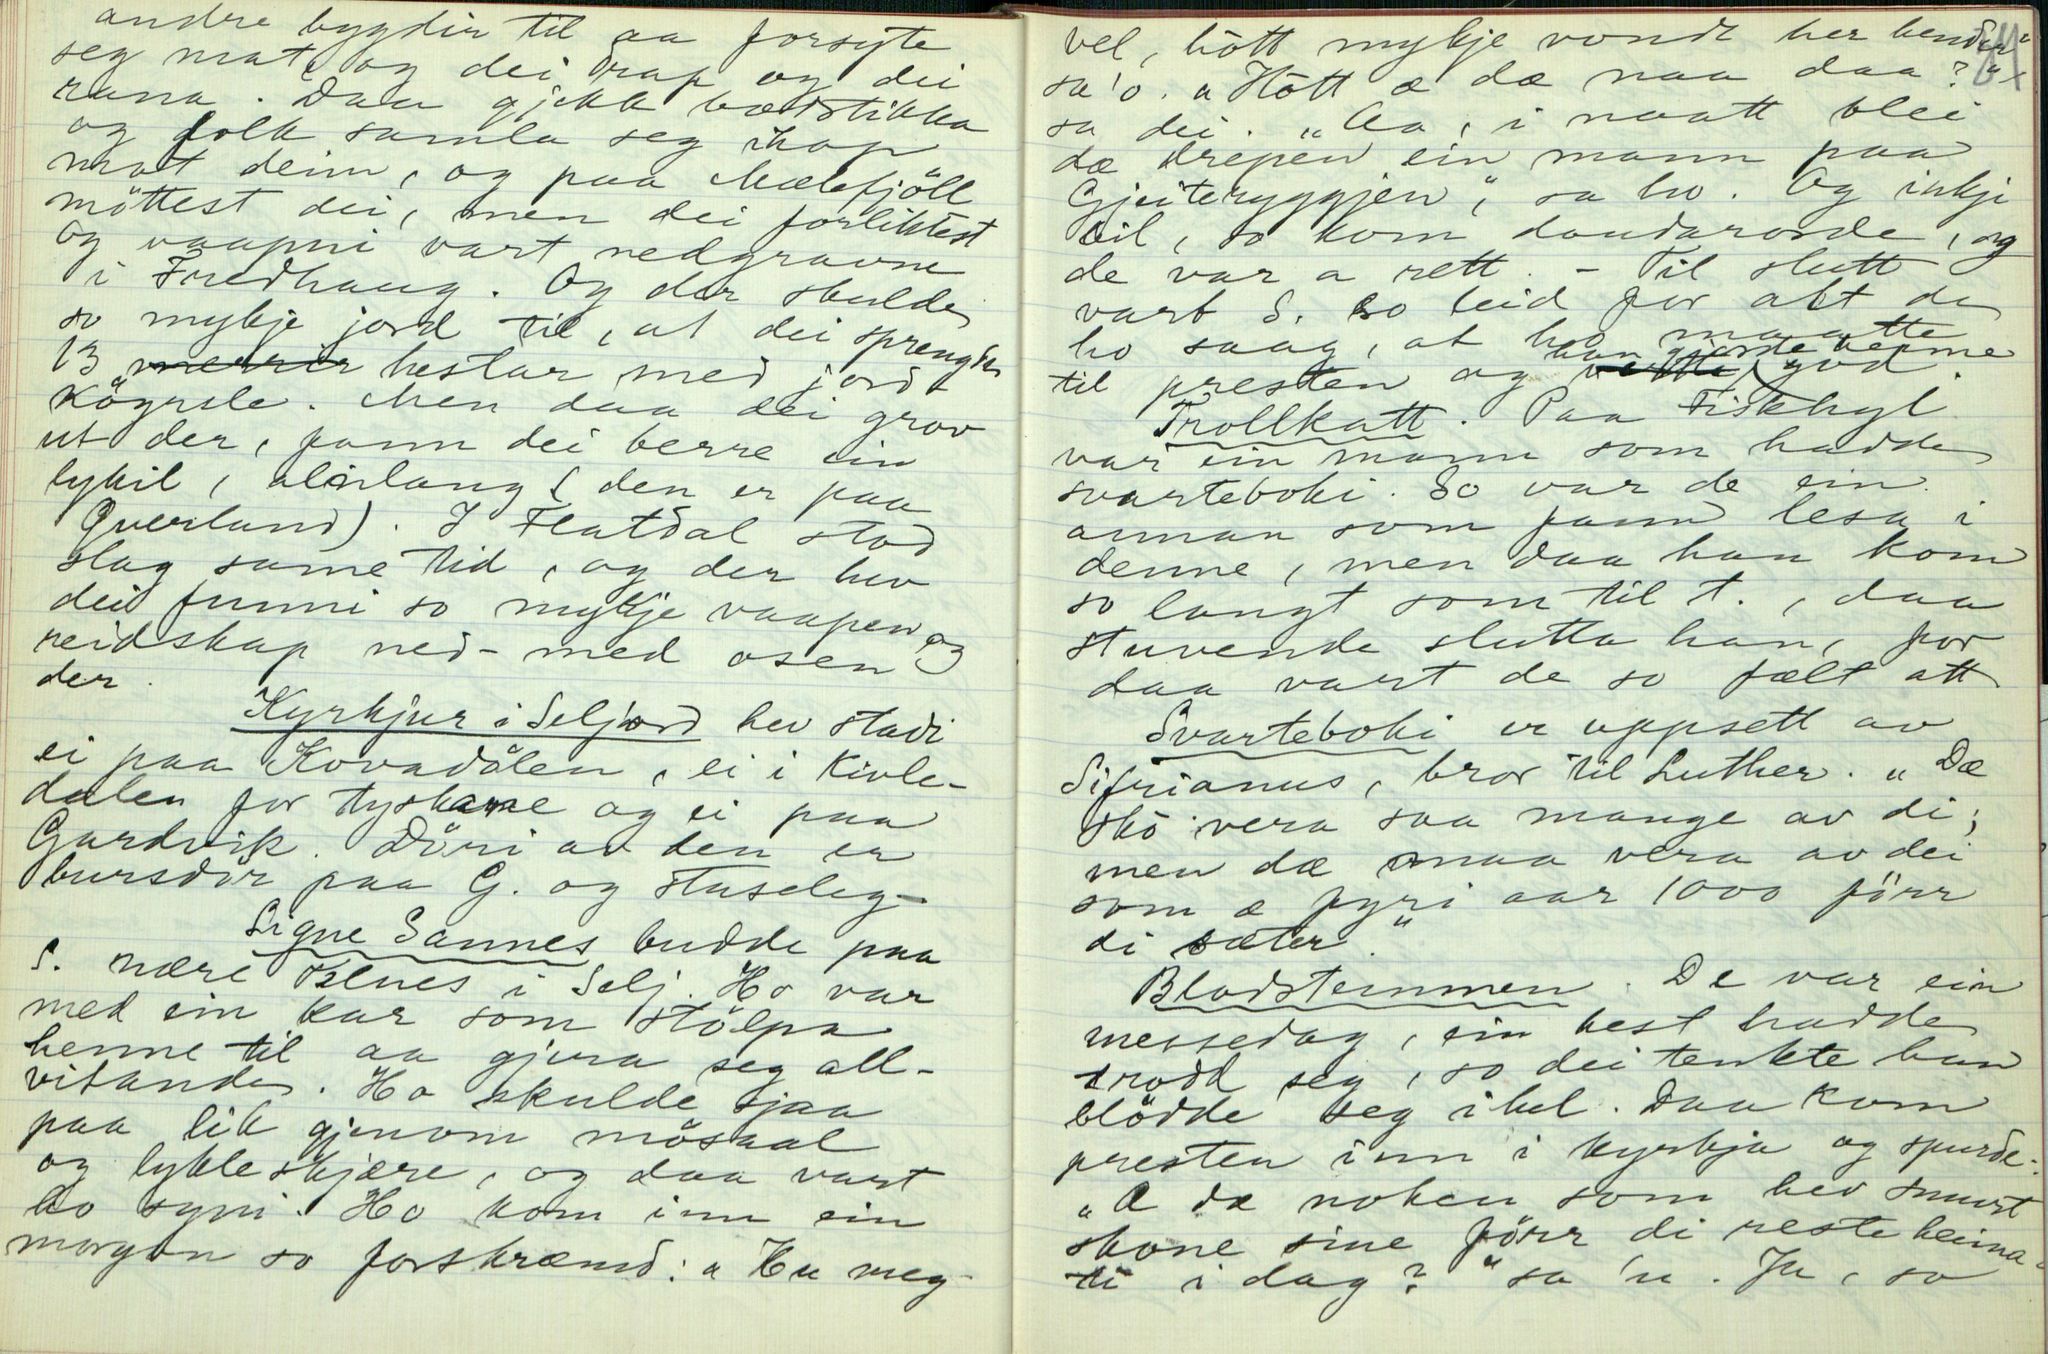 andre bygdir til aa forsyte
seg mat, og dei drap og dei
rana. Daa gjekk bodstikka
og folk samla seg ihop
mot deim, og paa Mælefjöll
möttest dei, men dei forliktest
og vaapni vart nedgravne
i Fredhaug. Og der skulde
so mykje jord til, at dei sprengde
13 merrir hestar med jord-
köyrsle. Men daa dei grov
ut der, fann dei berre ein
lykil, alinlang (den er paa
Qverland). I Flatdal stod
slag same tid, og der hev
dei funni so mykje vaapen og
reidskap ned-med osen
der.
Kyrkjur i Seljord hev stadi
ei paa Kovadålen, ei i Kivle-
dalen for tyskarne og ei paa
Gardvik. Döri av den er
bursdör paa G. og stuseleg.
Signe Sannes budde paa
S. nære Elnes i Selj. Ho var
med ein kar som stölpa
henne til aa gjera seg all-
vitande. Ho skulde sjaa
paa lik gjenom mösaal
og lykleskjære, og daa vart
ho syni. Ho kom inn ein
morgon so forskræmd: "Eu meg
vel, hött mykje vondt her hender"
sa 'o. "Hött æ dæ naa daa?"
sa dei. "Aa, i naatt blei
dæ drepen ein mann paa
Gjeiteryggjen," sa ho. Og inkji
leil, so kom daudarorde, og
de var a rett. - Til slutt
vart S. so leid for alt de
ho saag, at ho maatte
til presten og vertte han gjorde henne god.
Trollkatt. Paa Fiskhyl
var ein mann som hadde
svarteboki. So var de ein
annan som fann lesa i
denne, men daa han kom
so langt som til t., daa
stuvende slutta han, for
daa vart de so fælt att
Svarteboki er uppsett av
Sifrianus, bror til Luther. "Dæ
skö vera saa mange av di;
men dæ maa vera av dei
som æ fyri aar 1000 förr
di sæter."
Blodstemmen. De var ein
messedag, ein hest hadde
trodd seg, so dei tenkte han
blödde seg ihel. Daa kom
presten inn i kyrkja og spurde:
"Æ dæ noken som hev smurt
skone sine förr di reste heima-
ti i dag?" sa 'n. Ja, so